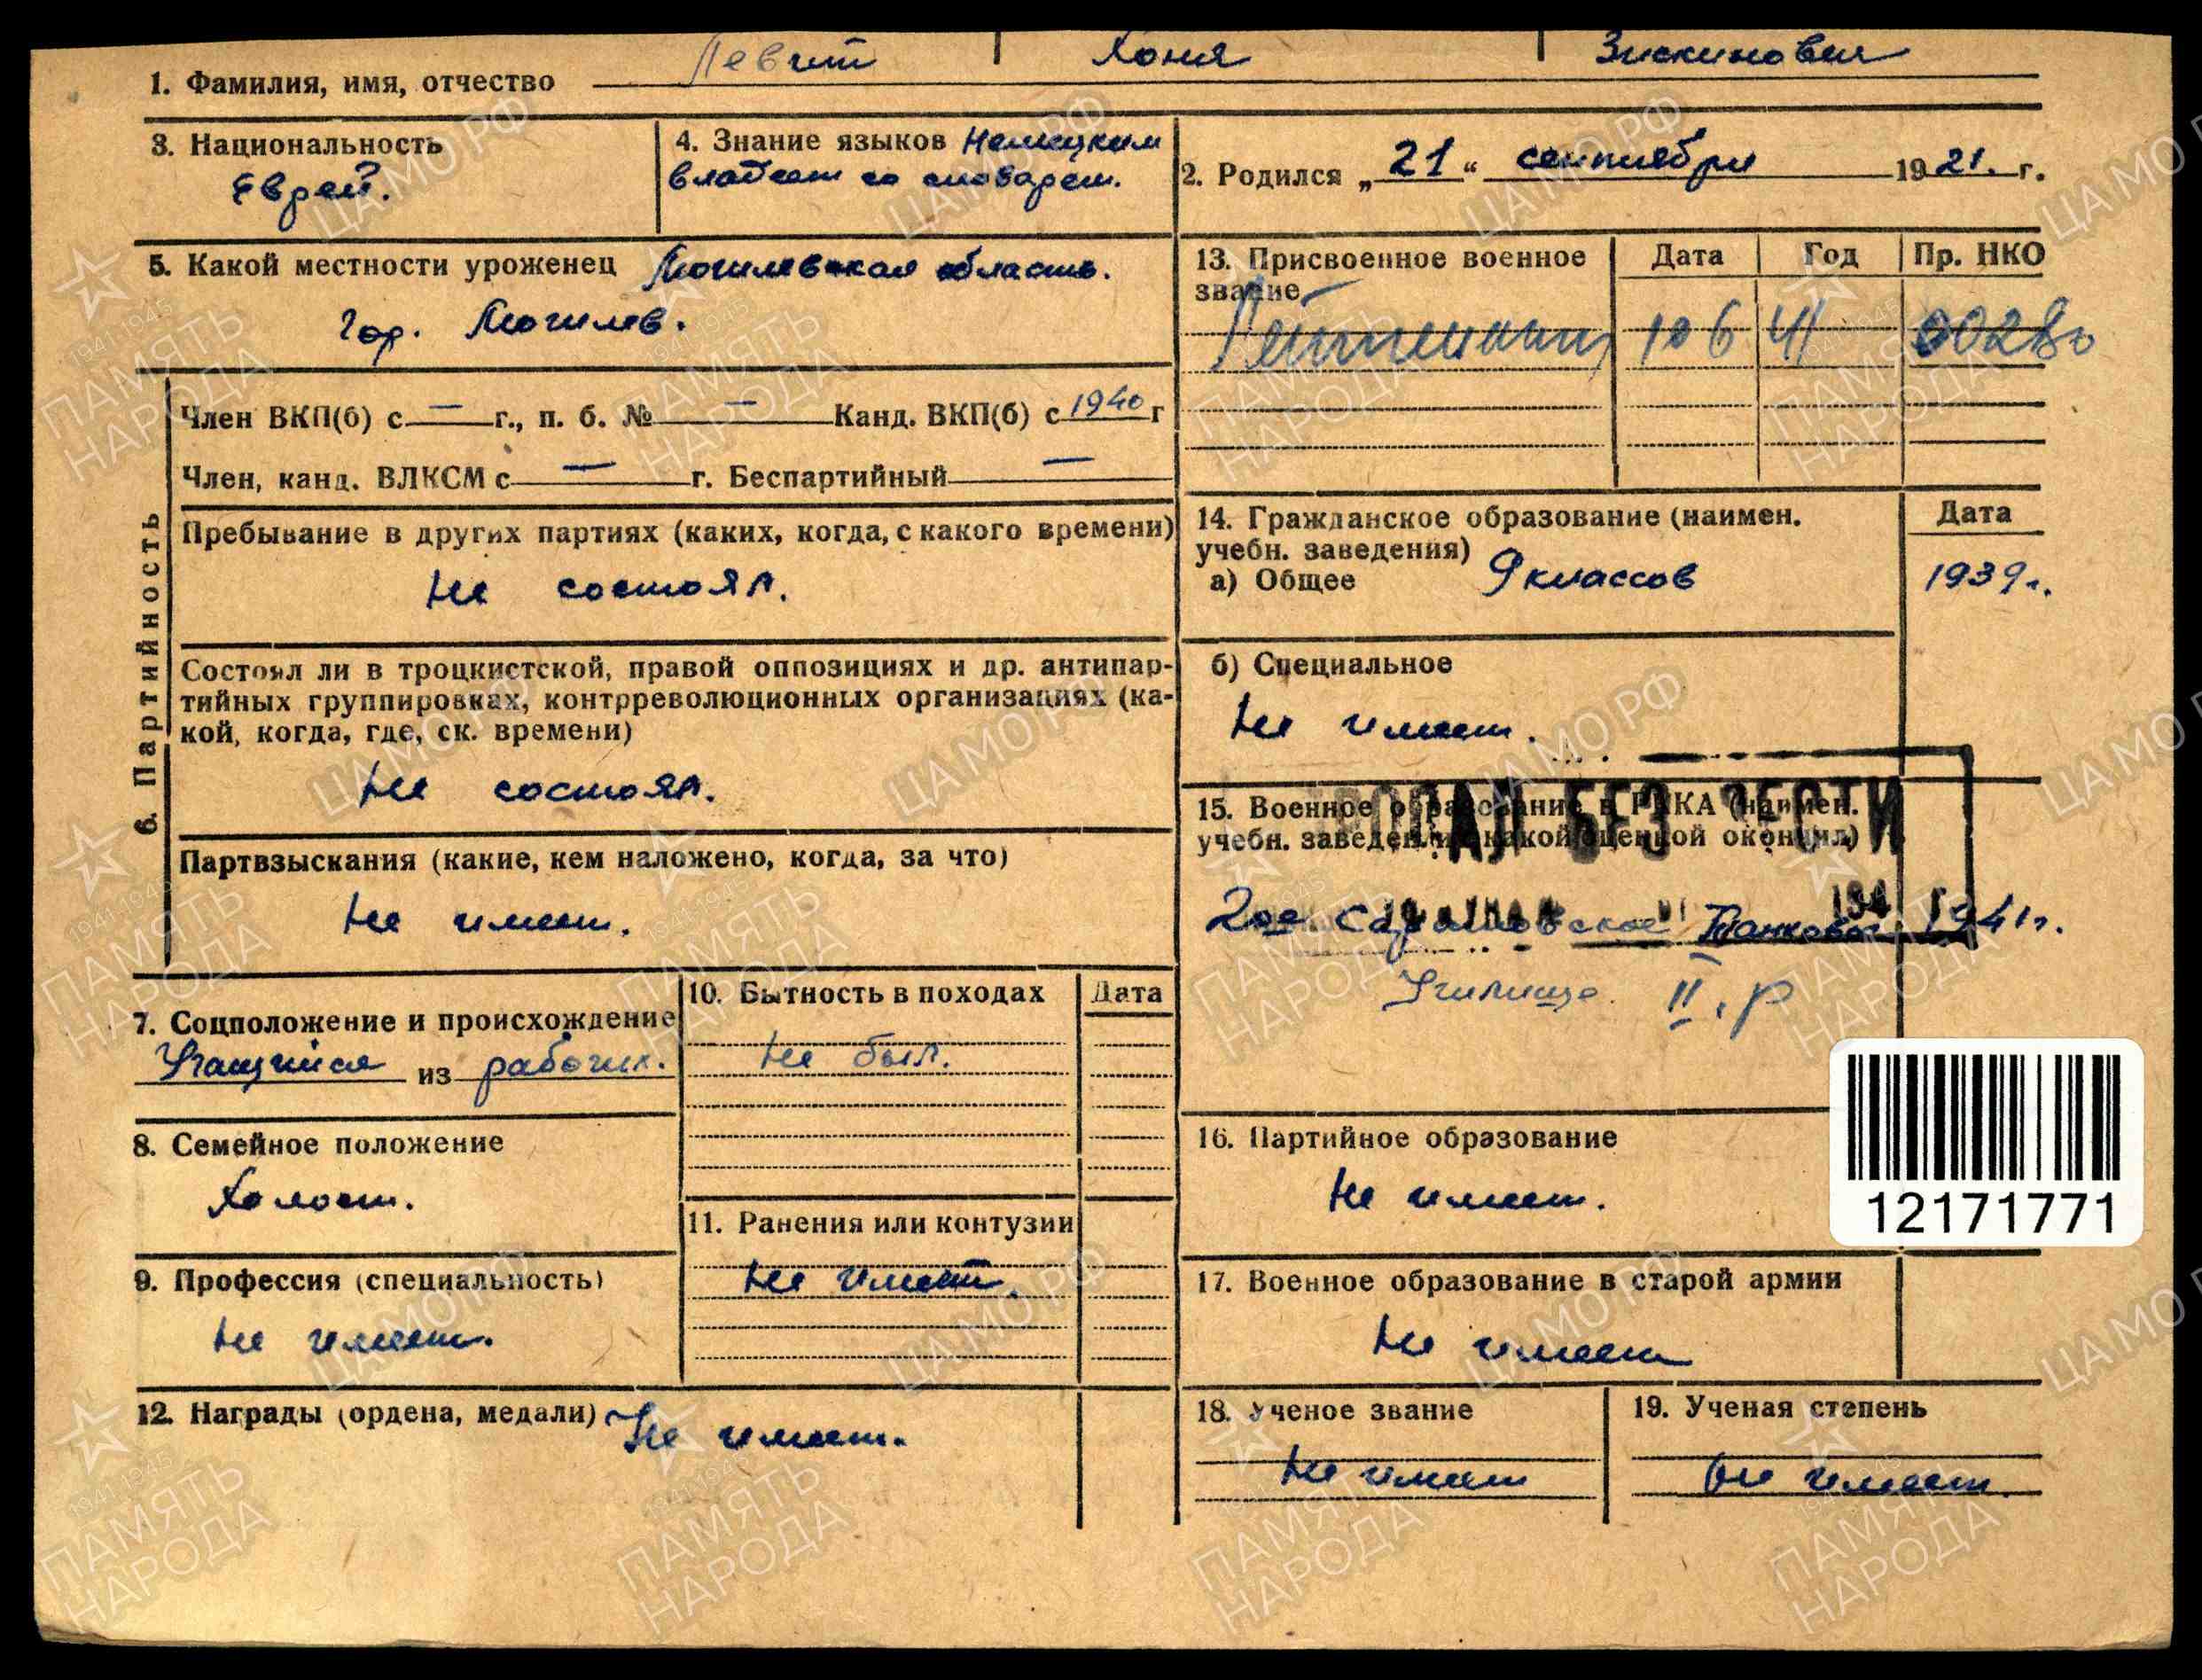 Левит Хоня Зискинович
1. Фамилия, имя, отчество
3. Национальность
Еврей.
4. Знание языков Немецким
владеет со словарем.
2. Родился „21“ сентября 1921. г.
5. Какой местности уроженец Могилевская область.
гор. Могилев.
13. Присвоенное военное
звание
Дата Год Пр. НКО
Лейтенант 10 6 41 00280
6. Партийность
Член ВКП(б) с — г., п. б. № — Канд. ВКП(б) с 1940 г
Член, канд. ВЛКСМ с — г. Беспартийный —
Пребывание в других партиях (каких, когда, с какого времени)
Не состоял.
Состоял ли в троцкистской, правой оппозициях и др. антипар-
тийных группировках, контрреволюционных организациях (ка-
кой, когда, где, ск. времени)
Не состоял.
Партвзыскания (какие, кем наложено, когда, за что)
Не имеет.
14. Гражданское образование (наимен.
учебн. заведения)
Дата
а) Общее 9 классов 1939 г.
б) Специальное
Не имеет.
15. Военное образование в РККА (наимен.
учебн. заведения с какой оценкой окончил)
ПРОПАЛ БЕЗ ВЕСТИ
194 г.
2ое Саратовское Танковое 1941 г.
Училище. II. р
7. Соцположение и происхождение
Учащийся из рабочих.
10. Бытность в походах Дата
Не был.
8. Семейное положение
Холост.
11. Ранения или контузии
Не имеет.
9. Профессия (специальность)
Не имеет.
12. Награды (ордена, медали) Не имеет.
16. Партийное образование
Не имеет.
12171771
17. Военное образование в старой армии
Не имеет
18. Ученое звание
Не имеет
19. Ученая степень
Не имеет.
ЦА МО РФ
1941-1945
ПАМЯТЬ
НАРОДА